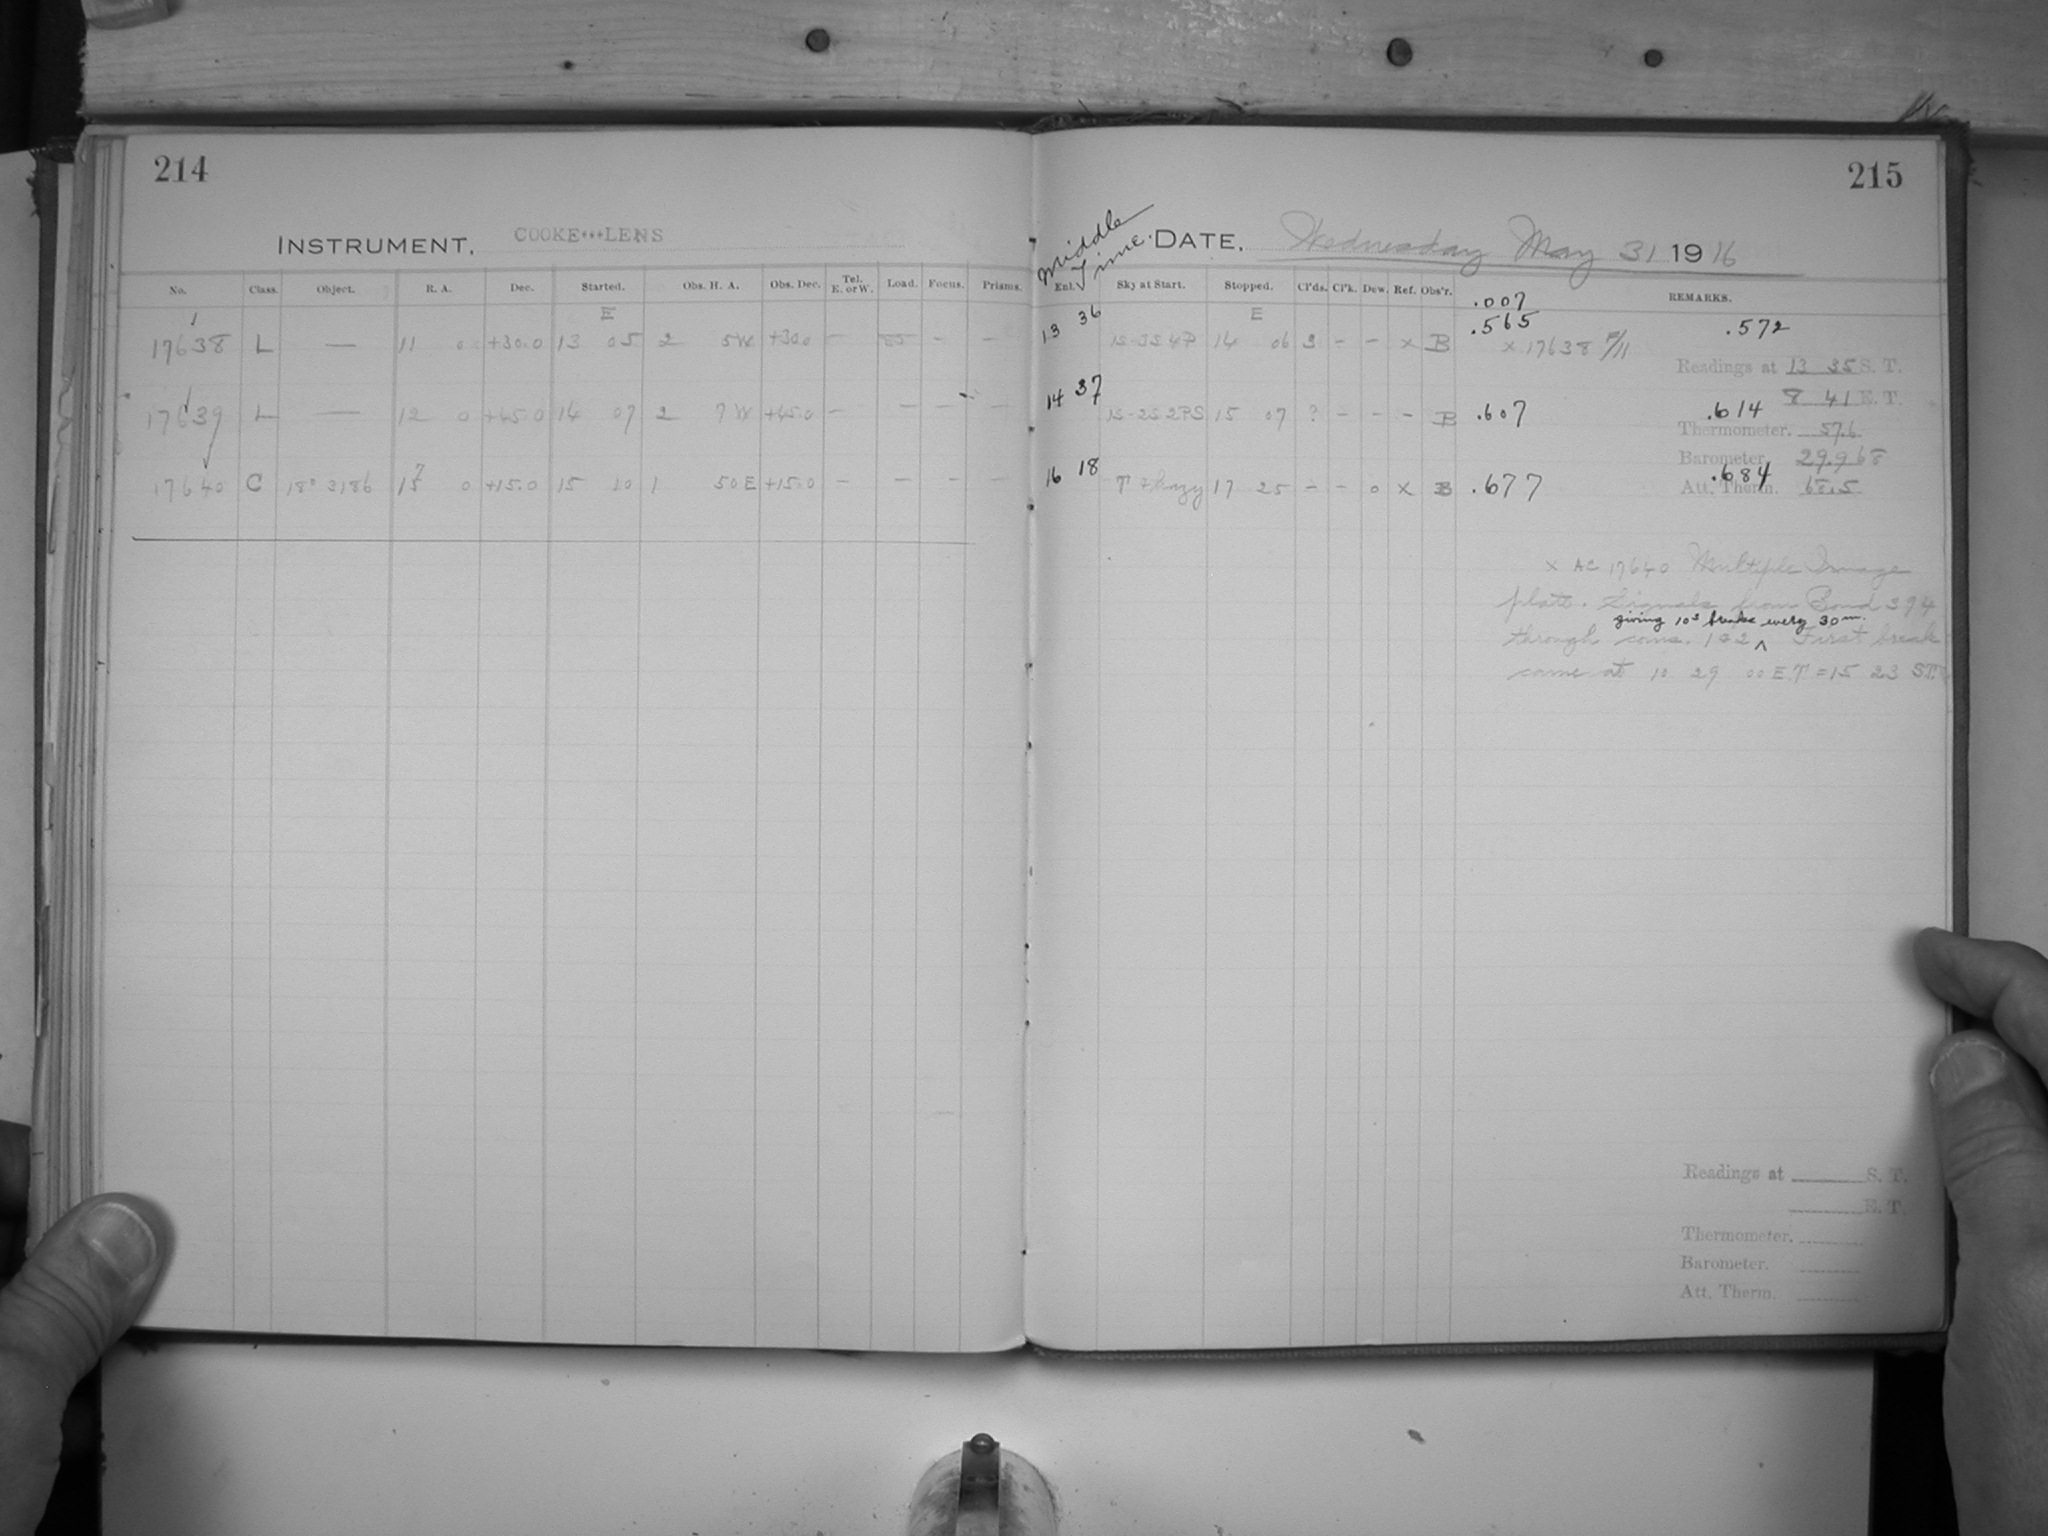 214
215
INSTRUMENT, COOKE LENS
Middle
Time.
DATE, Wednesday May 31 1916
No. Class. Object. R. A. Dec. Started. Obs. H. A. Obs. Dec. Tel. E. or W. Load. Focus. Prisms. Enl. Sky at Start. Stopped. Cl'ds. Cl'k. Dew. Ref. Obs'r. REMARKS.
E E .007
17638 L — 11 0 +30.0 13 05 2 5W +30.0 — — — 13 36 1S-3S4P 14 06 3 - - x B .565 .572
x 17638 F/11
Readings at 13 35 S. T.
8 41 E. T.
17639 L — 12 0 +45.0 14 07 2 7W +45.0 — — — — 14 37 1S-2S2PS 15 07 ? - - - B .607 .614
Thermometer. 57.6
Barometer. 29.968
17640 C 18° 3186 0 +15.0 15 10 1 50E +15.0 — — — — 16 18 + hazy 17 25 - - 0 x B .677 .684
Att. Therm. 68.5
x AC 17640 Multiple Image
plate. Signals from Bond 394
giving 10s breaks every 30m.
through coms. 1&2 ^ First break
came at 10 29 00 E.T = 15 23 S.T.
Readings at S. T.
E. T.
Thermometer.
Barometer.
Att. Therm.